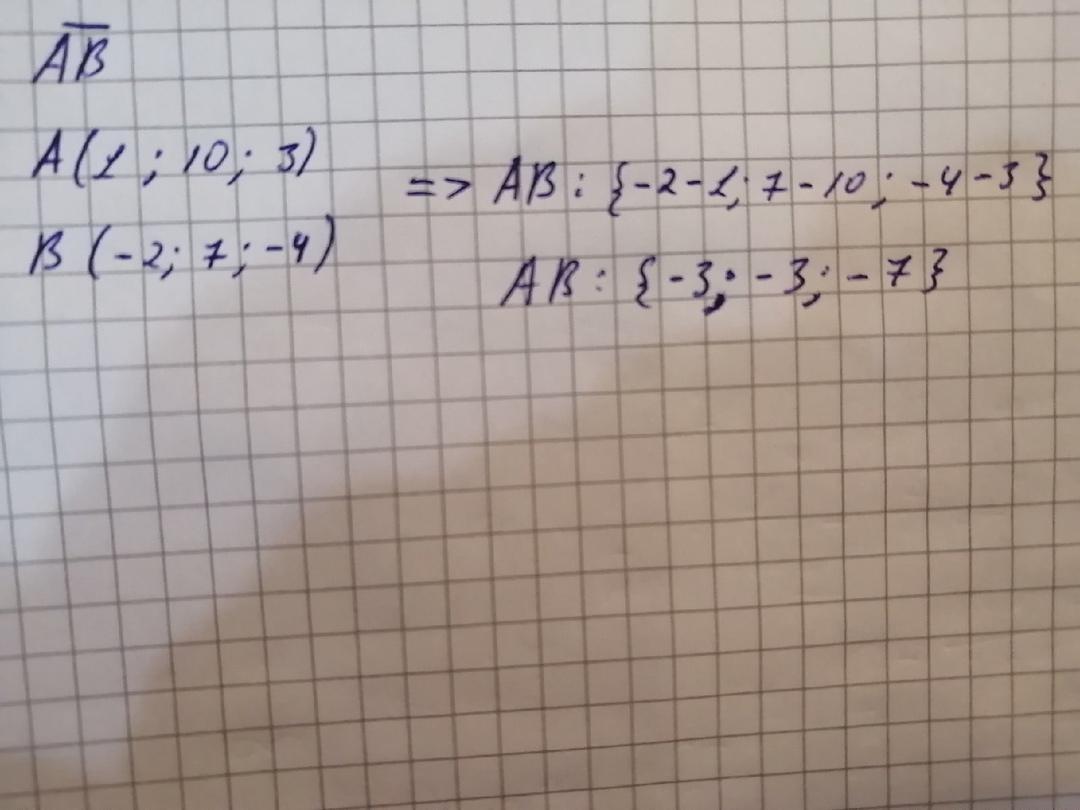 A̅B̅
A(1; 10; 3)
B(-2; 7; -4)
=> AB: {-2-1; 7-10; -4-3}
AB: {-3; -3; -7}